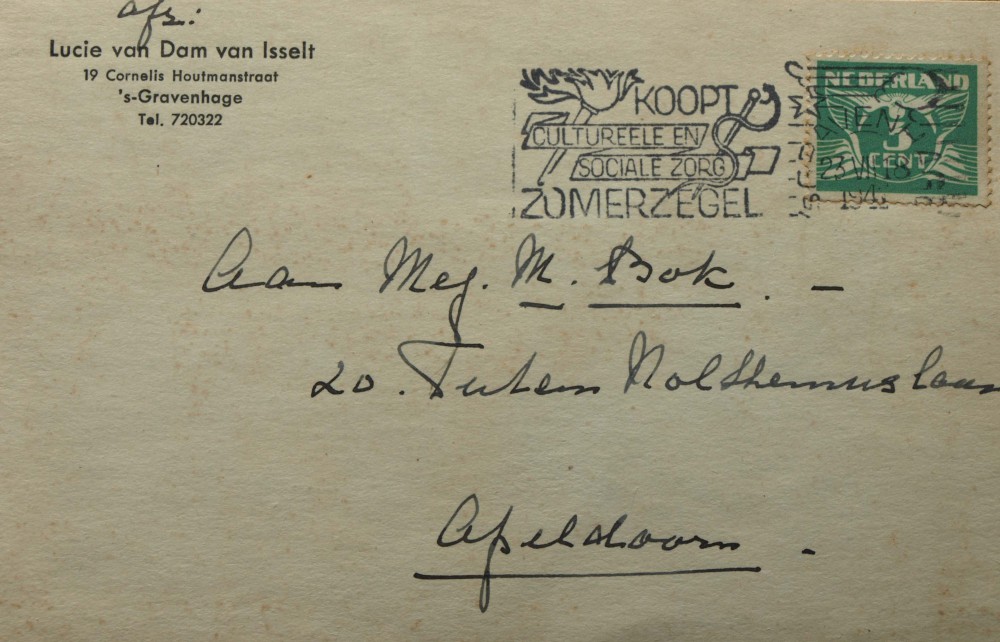 afz:
Lucie van Dam van Isselt
19 Cornelis Houtmanstraat
's-Gravenhage
Tel. 720322
KOOPT
CULTUREELE EN
SOCIALE ZORG
ZOMERZEGEL
NEDERLAND
3
CENT
23 VII 18
194
Aan Mej. M. Bok. –
20. Tutein Nolthenuslaan
Apeldoorn -